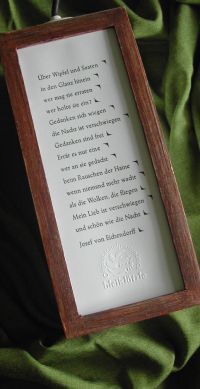 Über Wipfel und Saaten
in den Glanz hinein
wer mag sie erraten
wer holte sie ein?
Gedanken sich wiegen
die Nacht ist verschwiegen
Gedanken sind frei
Errät es nur eine
wer an sie gedacht
beim Rauschen der Haine
wenn niemand mehr wacht
als die Wolken, die fliegen
Mein Lieb ist verschwiegen
und schön wie die Nacht
Josef von Eichendorff